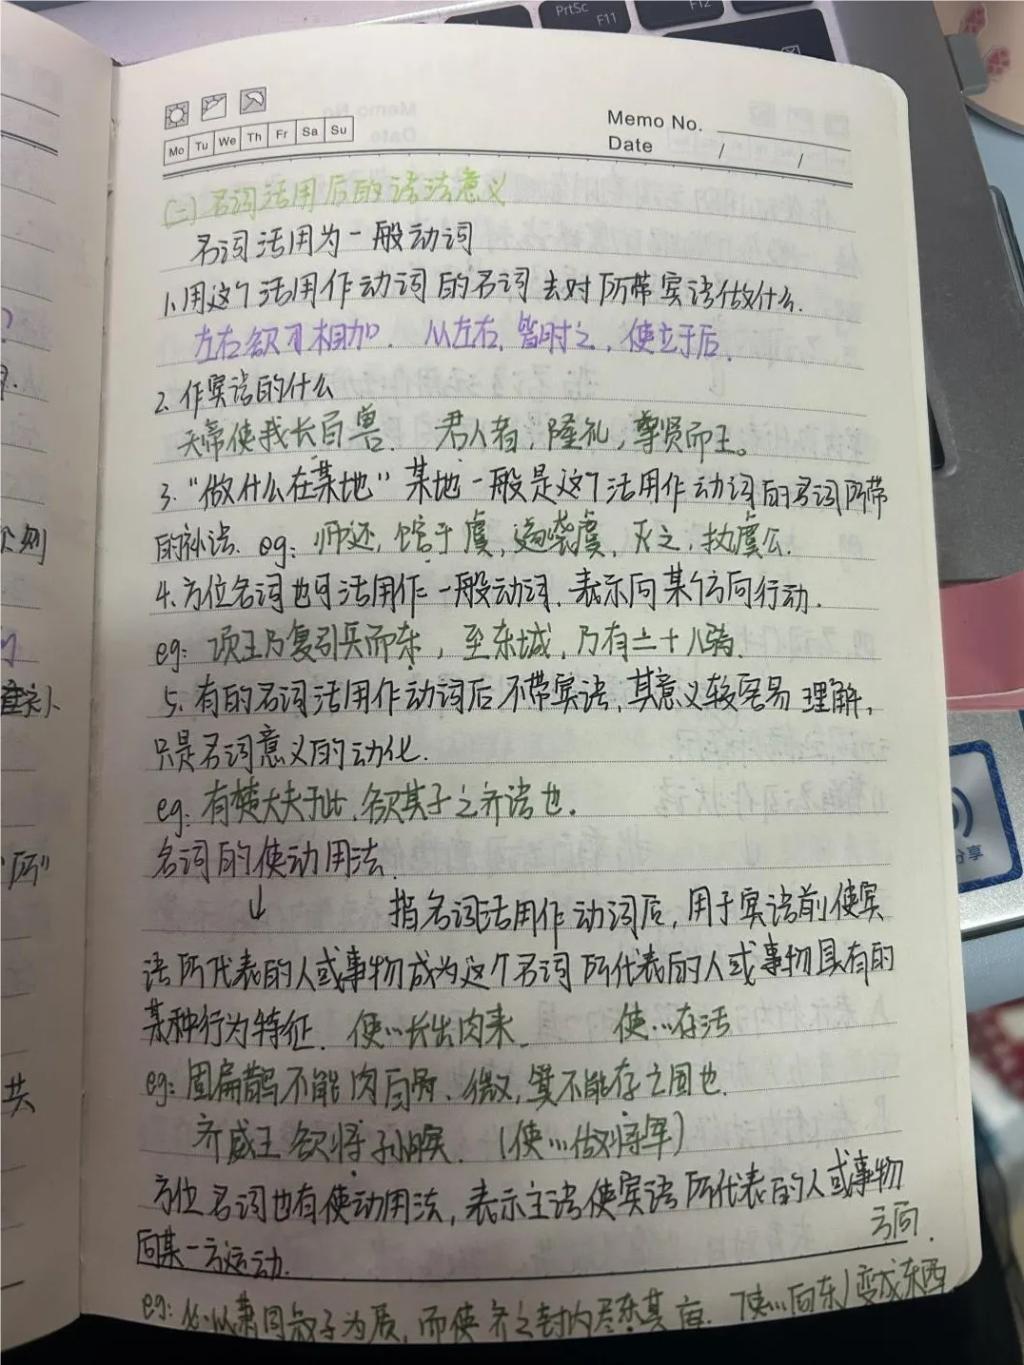 PrtSc
F11
F12
Mo Tu We Th Fr Sa Su
Memo No.
Date / /
(二)名词活用后的语法意义
名词活用为一般动词
1.用这个活用作动词的名词去对所带宾语做什么.
左右欲刃相如. 从左右,皆肘之,使立于后.
2.作宾语的什么
天帝使我长百兽. 君人者,隆礼,尊贤而王。
3.“做什么在某地”某地一般是这个活用作动词的名词所带
的补语. eg:师还,馆于虞,遂袭虞,灭之,执虞公.
4.方位名词也可活用作一般动词.表示向某个方向行动.
eg:项王乃复引兵而东,至东城,乃有二十八骑.
5.有的名词活用作动词后不带宾语,其意义较容易理解,
只是名词意义的动化.
eg.有楚大夫于此,欲其子之齐语也.
名词的使动用法.
↓ 指名词活用作动词后,用于宾语前使宾
语所代表的人或事物成为这个名词所代表的人或事物具有的
某种行为特征. 使…长出肉来. 使…存活
eg:固扁鹊不能肉白骨、微 不能存之国也.
齐威王欲将孙膑.(使…做将军)
方位名词也有使动用法,表示主语使宾语所代表的人或事物
向某一方运动. 方向.
eg:必以萧同叔子为质,而使齐之封内尽东其亩. (使…向东)变成东西
个别
“所”
共
分享